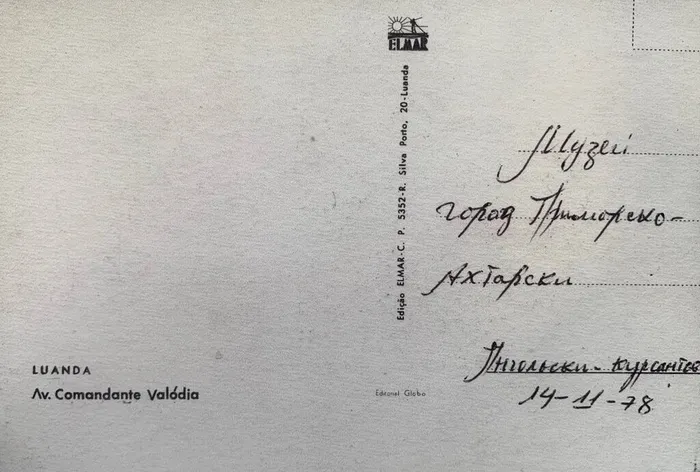 ELMAR
Edição ELMAR-C. P. 5352-R. Silva Porto, 20-Luanda
Музей
город Приморско-
Ахтарски
Ангольски-курсантов
14-11-78
LUANDA
Av. Comandante Valódia
Editorel Globo